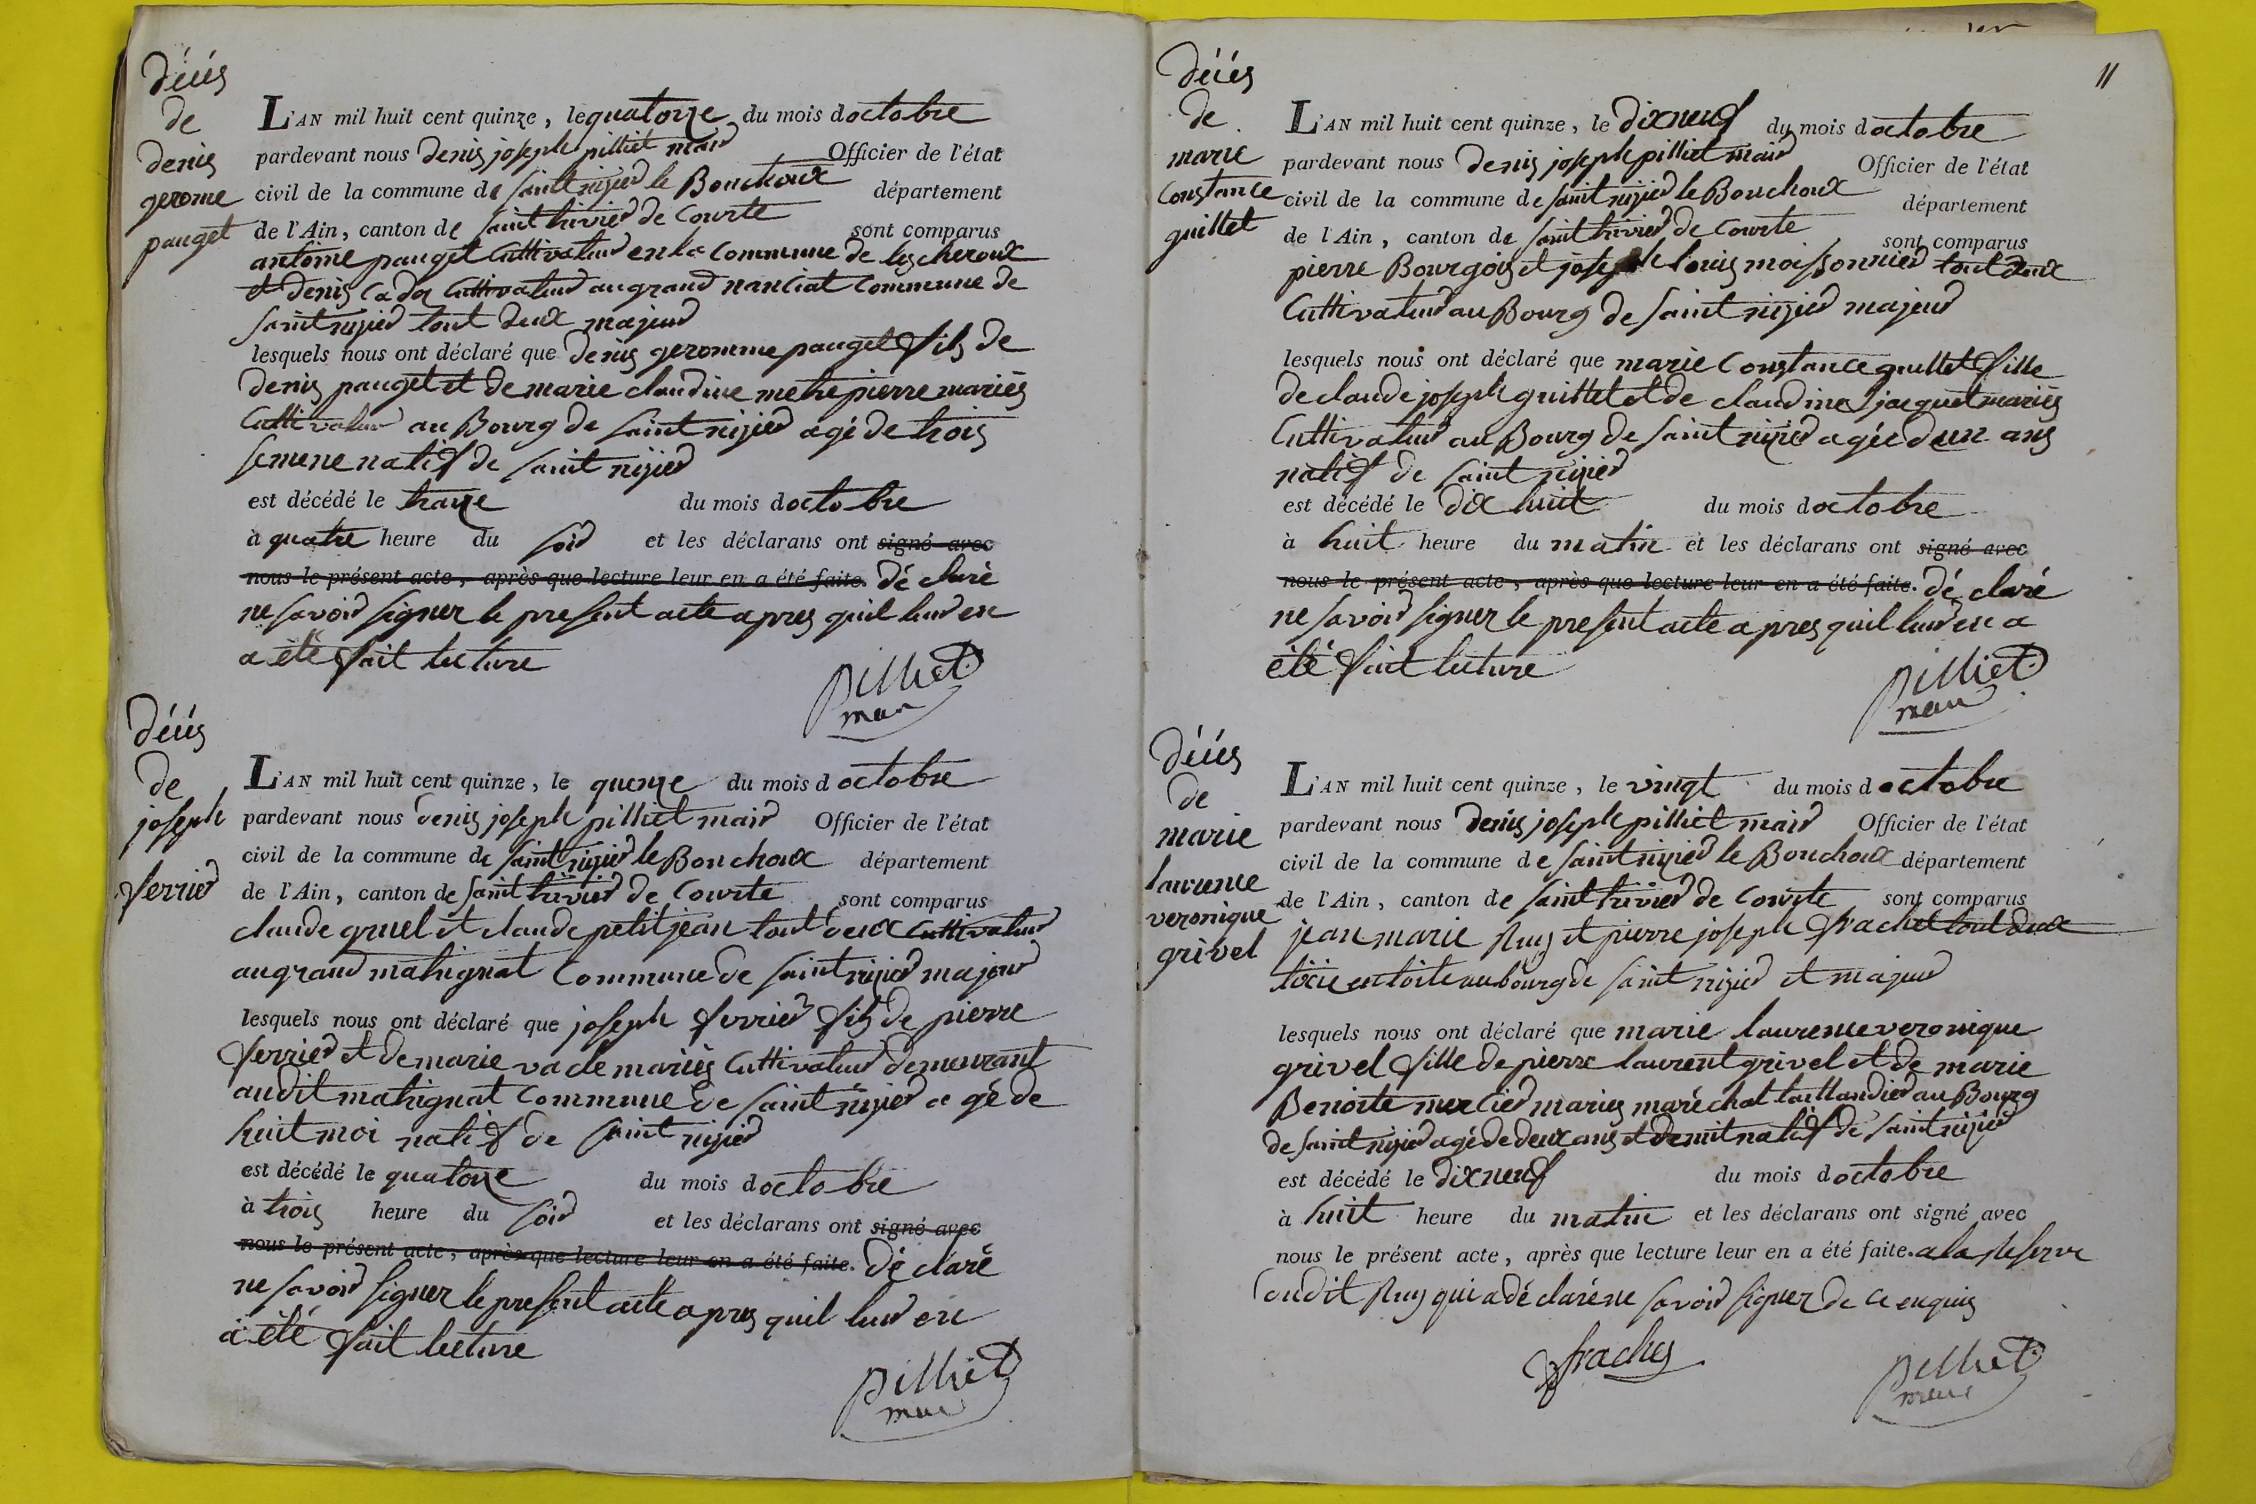 décès
de
denis
gerome
pauget
L'AN mil huit cent quinze, le quatorze du mois d octobre
pardevant nous denis joseph pilliet maire Officier de l'état
civil de la commune de saint nizier le Bouchoux département
de l'Ain, canton de saint trivier de Courte sont comparus
antoine pauget Cultivateur en la Commune de lescheroux
et denis Cadoz Cultivateur au grand nanciat Commune de
saint nizier tout deux majeur
lesquels nous ont déclaré que denis geromme pauget fils de
denis pauget et de marie claudine metrepierre mariés
Cultivateur au Bourg de saint nizier agé de trois
semene natif de saint nizier
est décédé le traize du mois d octobre
à quatre heure du soir et les déclarans ont signé avec
nous le présent acte, après que lecture leur en a été faite. dé claré
ne savoir signer le present acte apres quil leur en
a été fait lecture
pilliet
maire
décès
de
joseph
ferrier
L'AN mil huit cent quinze, le quenze du mois d octobre
pardevant nous denis joseph pilliet maire Officier de l'état
civil de la commune de saint nizier le Bouchoux département
de l'Ain, canton de saint trivier de Courte sont comparus
claude gruel et claude petitjean tout deux Cultivateur
au grand matignat Commune de saint nizier majeur
lesquels nous ont déclaré que joseph ferrier fils de pierre
ferrier et de marie vacle mariés Cultivateur demeurant
audit matignat Commune de saint nizier agé de
huit moi natif de saint nizier
est décédé le quatorze du mois d octobre
à trois heure du soir et les déclarans ont signé avec
nous le présent acte, après que lecture leur en a été faite. dé claré
ne savoir signer le present acte apres quil leur en
a été fait lecture
pilliet
maire
11
décès
de
marie
Constance
guillet
L'AN mil huit cent quinze, le dixneuf du mois d octobre
pardevant nous denis joseph pilliet maire Officier de l'état
civil de la commune de saint nizier le Bouchoux département
de l'Ain, canton de saint trivier de Courte sont comparus
pierre Bourgois et joseph louis moissonnier tout deux
Cultivateur au Bourg de saint nizier majeur
lesquels nous ont déclaré que marie Constance guillet fille
de claude joseph guillet et de claudine jacquet mariés
Cultivateur au Bourg de saint nizier agée d'un ans
natif de saint nizier
est décédé le dix huit du mois d octobre
à huit heure du matin et les déclarans ont signé avec
nous le présent acte, après que lecture leur en a été faite. dé claré
ne savoir signer le present acte apres quil leur en a
été fait lecture
pilliet
maire
décès
de
marie
laurence
veronique
grivel
L'AN mil huit cent quinze, le vingt du mois d octobre
pardevant nous denis joseph pilliet maire Officier de l'état
civil de la commune de saint nizier le Bouchoux département
de l'Ain, canton de saint trivier de Courte sont comparus
jean marie Ruy et pierre joseph frachet tout deux
au bourg de saint nizier et majeur
lesquels nous ont déclaré que marie laurence veronique
grivel fille de pierre laurent grivel et de marie
Benoite mercier mariés maréchal taillandier au Bourg
de saint nizier agé de deux ans et demit natif de saint nizier
est décédé le dixneuf du mois d octobre
à huit heure du matin et les déclarans ont signé avec
nous le présent acte, après que lecture leur en a été faite. a la Reserve
dudit Ruy qui a dé claré ne savoir signer de ce enquis
frachet
pilliet
maire